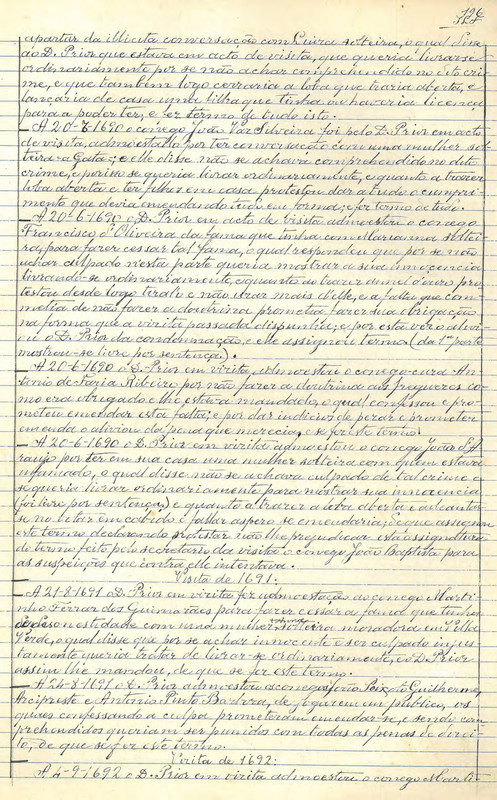 126
apartar da illicita conversação com Luiza solteira, o qual disse
ao D. Prior que estava em acto de visita, que queria livrar-se
ordinariamente por se não achar comprehendido no dito cri-
me, e que tambem logo cerraria a loba que trazia aberta, e
lançaria de casa uma filha que tinha ou haveria licença
para a poder ter; e fez termo de tudo isto.
— A 20-6-1690 o conego João Vaz Silveira foi pelo D. Prior em acto
de visita, admoestado por ter conversação com uma mulher sol-
teira a Gata; e elle disse não se achava comprehendido no dito
crime, e por isso se queria livrar ordinariamente, e quanto a trazer
loba aberta e ter filhos em casa protestou dar a tudo o cumpri-
mento que devia emendando tudo em forma; e fez termo de tudo.
— A 20-6-1690 o D. Prior em acto de visita admoestou o conego
Francisco d'Oliveira da fama que tinha com Marianna soltei-
ra, para fazer cessar tal fama, o qual respondeu que por se não
achar culpado n'esta parte queria mostrar a sua innocencia
livrando-se ordinariamente, e quanto ao trazer annel d'ouro pro-
testou desde logo tiral-o e não usar mais d'elle, e a falta que com-
mettia de não fazer a doutrina prometia fazer sua obrigação
na forma que a visita passada dispunha; e por esta vez o alivi-
ou o D. Prior da condemnação, e elle assignou termo (da 1ª parte
mostrou-se livre por sentença).
— A 20-6-1690 o D. Prior em visita, admoestou o conego-cura An-
tonio de Faria Ribeiro por não fazer a doutrina aos freguezes co-
mo era obrigado e lhe estava mandado, o qual confessou e pro-
meteu emendar esta falta; e por dar indicios de pezar e prometter
emenda o aliviou da pena que merecia, e se fez este termo.
— A 20-6-1690 o D. Prior em visita admoestou o conego João d'A-
raujo por ter em sua casa uma mulher solteira com quem estava
infamado, o qual disse não se achava culpado de tal crime e
se queria livrar ordinariamente para mostrar sua innocencia
(foi livre, por sentença) e quanto a trazer a loba aberta e
se no votar em cabido e fallar aspero se emendaria; e que assignava
este termo declarando protestar não lhe prejudicar esta assignatura
do termo feito pelo secretario da visita o conego João Baptista para
as suspeições que contra elle intentava.
Visita de 1691:
— A 21-8-1691 o D. Prior em visita fez admoestação ao conego Marti-
nho Ferraz dos Guimarães para fazer cessar a fama que tinha
de deshonestidade com uma mulher solteira moradora em Villa
Verde, o qual disse que por se achar innocente e ser culpado injus-
tamente queria tratar de livrar-se ordinariamente, e o D. Prior
assim lhe mandou, de que se fez este termo.
— A 24-8-1691 o D. Prior admoestou os conegos João Peixoto Guilherme,
Arcipreste e Antonio Pinto Barbosa, de jogarem em publico, os
quaes confessando a culpa prometeram emendar-se, e sendo com-
prehendidos queriam ser punidos com todas as penas de direi-
to, de que se fez este termo.
Visita de 1692:
— A 4-9-1692 o D. Prior em visita admoestou o conego Marti-